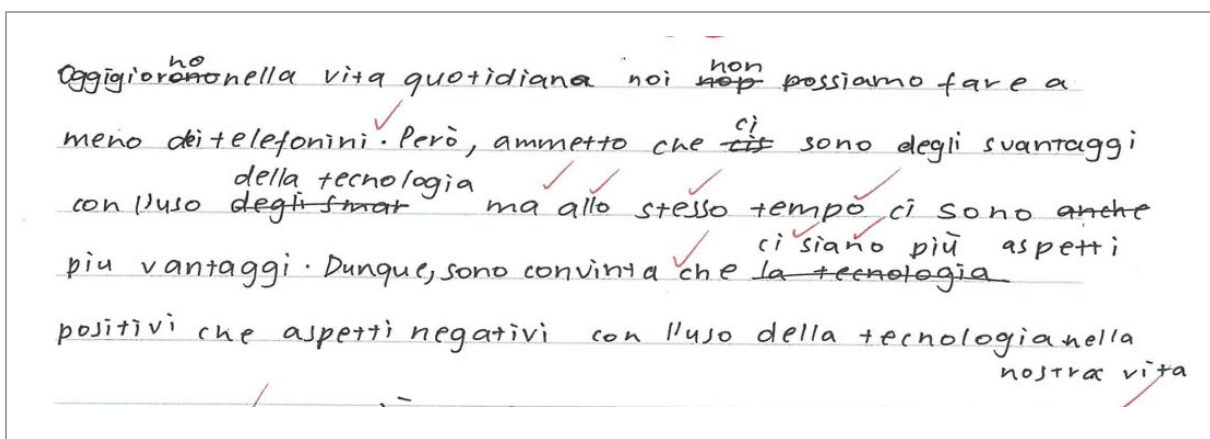 Oggigiorno nella vita quotidiana noi non possiamo fare a
meno dei telefonini. Però, ammetto che ci sono degli svantaggi
con l'uso della tecnologia ma allo stesso tempo ci sono
piu vantaggi. Dunque, sono convinta che ci siano più aspetti
positivi che aspetti negativi con l'uso della tecnologia nella
nostra vita